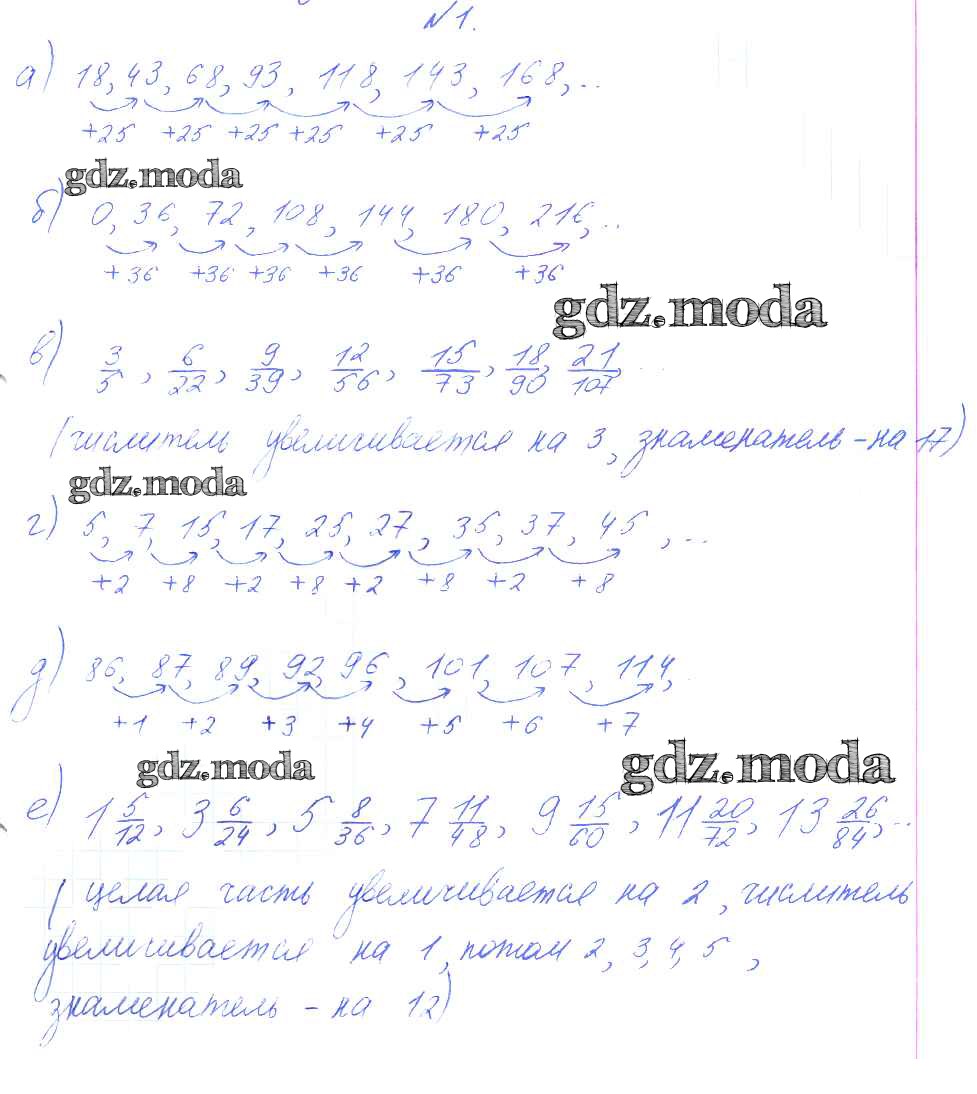 №1.
а) 18, 43, 68, 93, 118, 143, 168, ..
+25 +25 +25 +25 +25 +25
gdz.moda
б) 0, 36, 72, 108, 144, 180, 216, ..
+36 +36 +36 +36 +36 +36
gdz.moda
в) 3/5, 6/22, 9/39, 12/56, 15/73, 18/90, 21/107, ...
(числитель увеличивается на 3, знаменатель - на 17)
gdz.moda
г) 5, 7, 15, 17, 25, 27, 35, 37, 45, ...
+2 +8 +2 +8 +2 +8 +2 +8
д) 86, 87, 89, 92, 96, 101, 107, 114, .
+1 +2 +3 +4 +5 +6 +7
gdz.moda gdz.moda
е) 1 5/12, 3 6/24, 5 8/36, 7 11/48, 9 15/60, 11 20/72, 13 26/84, ..
(целая часть увеличивается на 2, числитель
увеличивается на 1, потом 2, 3, 4, 5,
знаменатель - на 12)